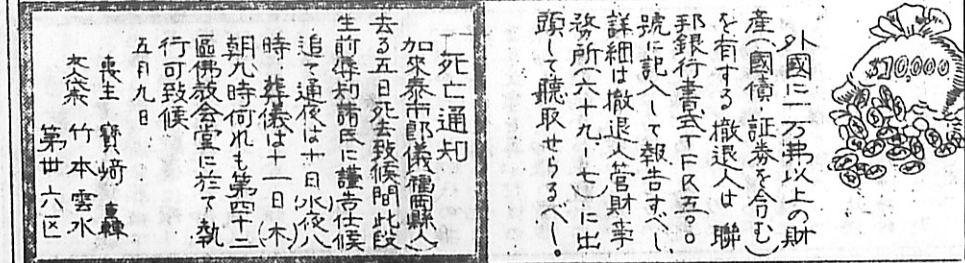 $10,000
外國に一万弗以上の財
産(國債、証券を含む)
を有する撤退人は聯
邦銀行書式TFR五〇〇
號に記入して報告すべし
詳細は撤退人管財事
務所(六十九ノ七)に出
頭して聽取せらるべし。
死亡通知
加來泰市郎儀(福岡縣人)
去る五日死去致候間此段
生前辱知諸氏に謹告仕候
追て通夜は十日(水)夜八
時、葬儀は十一日(木)
朝九時何れも第四十二
區佛教会堂に於て執
行可致候
五月九日
喪主 寳﨑
友人 竹本雲水
第卅六区